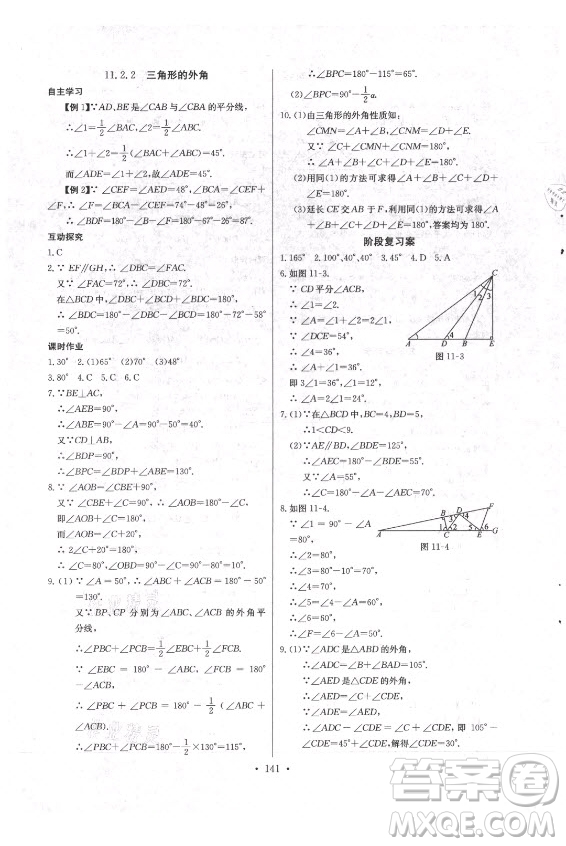 11.2.2 三角形的外角
自主学习
【例1】∵AD,BE是∠CAB与∠CBA的平分线,
∴∠1=1/2∠BAC,∠2=1/2∠ABC.
∴∠1+∠2=1/2(∠BAC+∠ABC)=45°.
而∠ADE=∠1+∠2,故∠ADE=45°.
【例2】∵∠CEF=∠AED=48°,∠BCA=∠CEF+
∠F,∴∠F=∠BCA-∠CEF=74°-48°=26°.
∴∠BDF=180°-∠B-∠F=180°-67°-26°=87°.
互动探究
1.C
2.∵EF∥GH,∴∠DBC=∠FAC.
又∵∠FAC=72°,∴∠DBC=72°.
在△BCD中,∵∠DBC+∠BDC+∠C=180°,
∴∠BDC=180°-∠DBC-∠C=180°-72°-58°
=50°.
课时作业
1.30° 2.(1)65° (2)70° (3)48°
3.80° 4.C 5.C 6.C
7.∵BE⊥AC,
∴∠AEB=90°,
∴∠ABE=90°-∠A=90°-60°=30°.
又∵CD⊥AB,
∴∠BDP=90°.
∴∠BPD=90°-∠ABE=90°-30°=60°.
8.∵∠AOB=∠CBE+90°,
又∵∠CBE+∠C=90°,∴∠CBE=90°-∠C.
即∠AOB=180°-∠C.
而∠AOB=∠C,
∴2∠C+20°=180°,
∴∠C=80°,∠OBD=90°-∠C=90°-80°=10°.
9.(1)∵∠A=50°,∴∠ABC+∠ACB=180°-50°
=130°.
又∵BP、CP分别为∠ABC、∠ACB的外角平
分线,
∴∠PBC+∠PCB=1/2∠EBC+1/2∠FCB.
∵∠EBC=180°-∠ABC,∠FCB=180°-
∠ACB,
∴∠PBC+∠PCB=180°-1/2(∠ABC+
∠ACB).
∴∠PBC+∠PCB=180°-1/2×130°=115°,
∴∠BPC=180°-115°=65°.
(2)∠BPC=90°-1/2α.
10.(1)由三角形的外角性质知:
∠CMN=∠A+∠B,∠CNM=∠D+∠E.
又∵∠C+∠CMN+∠CNM=180°,
∴∠A+∠B+∠C+∠D+∠E=180°.
(2)用同(1)的方法可求得∠A+∠B+∠C+∠D+
∠E=180°.
(3)延长CE交AD于F,利用同(1)的方法可求得
∠A+∠B+∠C+∠D+∠E=180°.
阶段复习案
1.165° 2.100°,40°,40° 3.45° 4.D 5.A
6.如图11-3.
∵CD平分∠ACB,
∴∠1=∠2.
又∵∠3=∠1,
∴∠1=∠2=∠3.
又∵∠DCE=54°,
∴∠4=36°.
∴∠A+∠1=36°.
即3∠1=36°-12°.
∴∠1=8°.
A
D
B
E
C
1
2
3
4
图11-3
7.(1)∵在△BCD中,BC=4,BD=5,
∴1<CD<9.
(2)∵AE∥BD,∴∠DEA=∠BDC=55°.
又∵∠A=55°,
∴∠C=180°-∠A-∠DEA=180°-55°-55°
=70°.
8.如图11-4.
∵∠1=90°-∠A
=80°.
∴∠2=80°.
∴∠3=180°-∠1-∠2=20°.
∴∠4=∠3+∠A=30°.
∴∠5=∠A+∠4=40°.
∴∠6=∠5=40°.
∴∠F=∠6-∠A=30°.
A
B
C
D
E
F
图11-4
9.(1)∵∠ADC是△ABD的外角,
∴∠ADC=∠BAD+∠B=105°.
∵∠AED是△CDE的外角,
∴∠AED=∠C+∠CDE.
∵∠B=∠C,∠ADE=∠AED,
∴∠ADC-∠CDE=∠C+∠CDE,即105°-
∠CDE=45°+∠CDE,解得∠CDE=30°.
• 141 •
答案圈
MXQE.COM